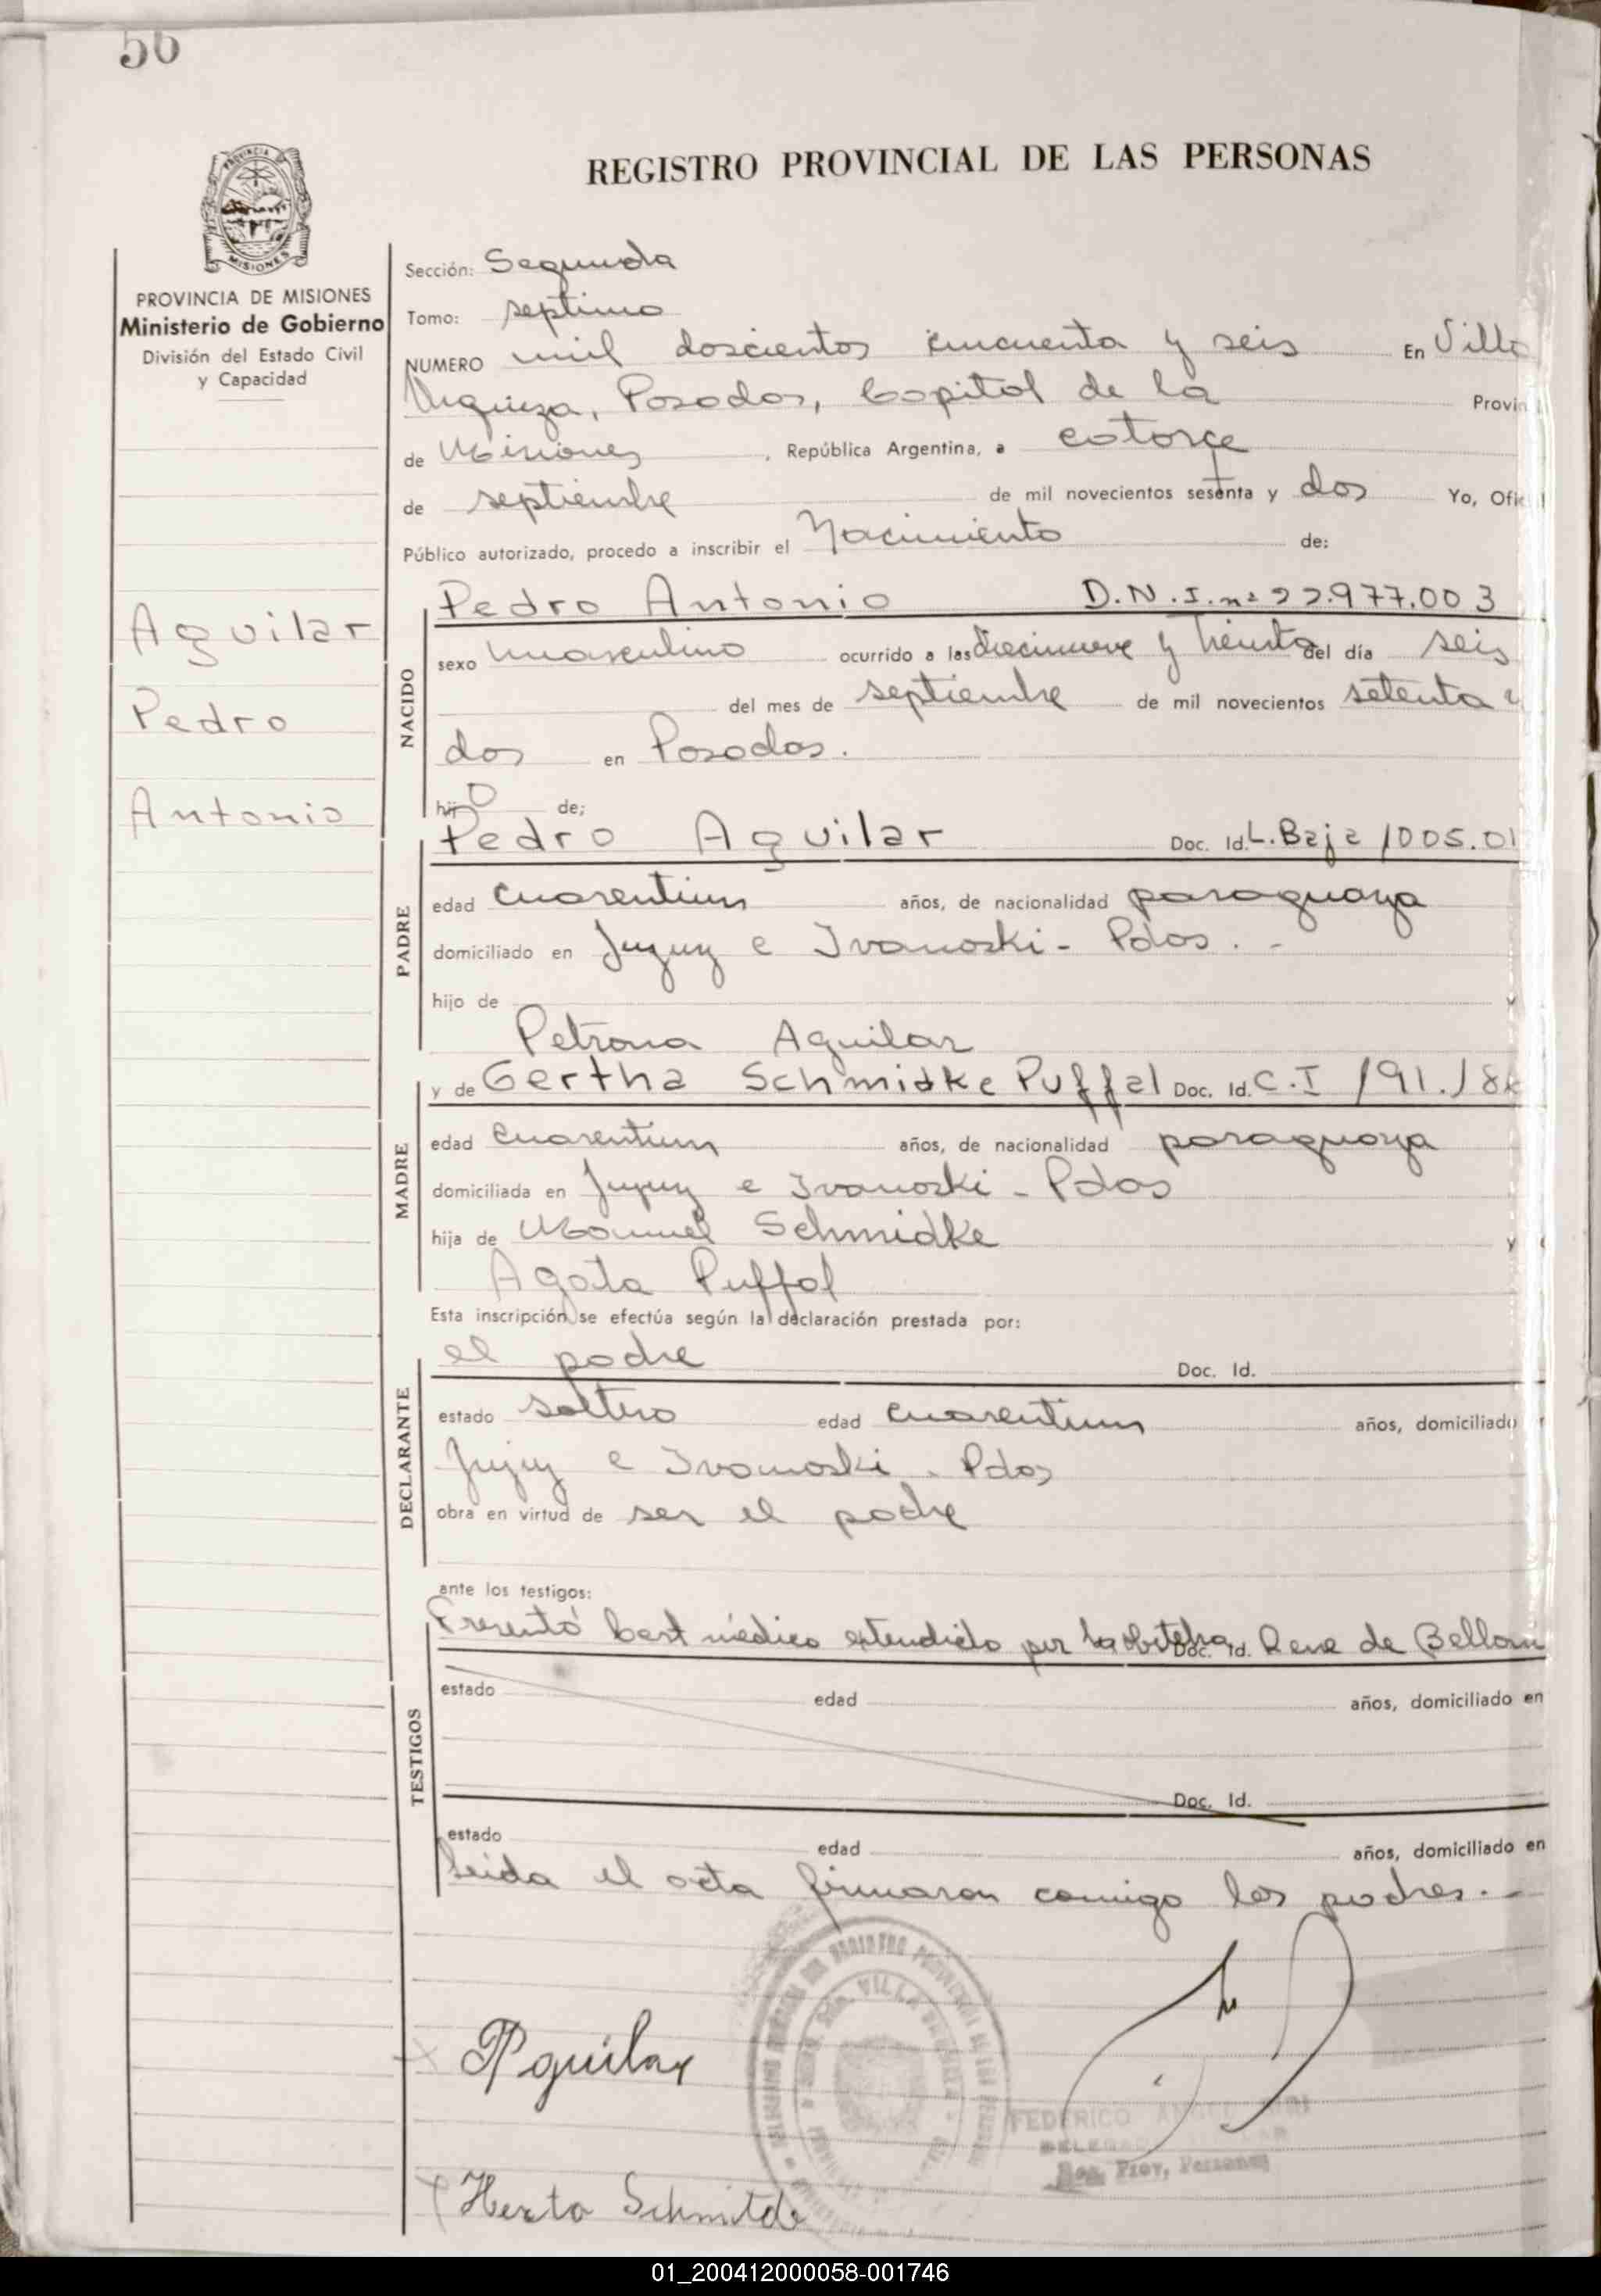 56
REGISTRO PROVINCIAL DE LAS PERSONAS
PROVINCIA
MISIONES
PROVINCIA DE MISIONES
Ministerio de Gobierno
División del Estado Civil
y Capacidad
Aguilar
Pedro
Antonio
Sección: Segunda
Tomo: septimo
NUMERO mil doscientos cincuenta y seis En Villa
Urquiza, Posadas, Capital de la Provin
de Misiones, República Argentina, a catorce
de septiembre de mil novecientos sesenta y dos Yo, Ofic
Público autorizado, procedo a inscribir el Nacimiento de:
NACIDO
Pedro Antonio D.N.I. nº 22.977.003
sexo masculino ocurrido a las diecinueve y treinta del día seis
del mes de septiembre de mil novecientos setenta y
dos en Posadas.
hijo de;
PADRE
Pedro Aguilar Doc. Id. L. Baja 1005.01
edad cuarentiun años, de nacionalidad paraguaya
domiciliado en Jujuy e Ivanoski - Pdas. -
hijo de y
Petrona Aguilar
MADRE
y de Gertha Schmidke Puffal Doc. Id. C.I 191.18
edad cuarentiun años, de nacionalidad paraguaya
domiciliada en Jujuy e Ivanoski - Pdas
hija de Manuel Schmidke y
Agata Puffal
Esta inscripción se efectúa según la declaración prestada por:
DECLARANTE
el padre Doc. Id.
estado soltero edad cuarentiun años, domiciliado
Jujuy e Ivanoski - Pdas
obra en virtud de ser el padre
ante los testigos:
TESTIGOS
Presentó Cert médico extendido por la obstetra Doc. Id. Rene de Bellom
estado edad años, domiciliado en
Doc. Id.
estado edad años, domiciliado en
Leida el acta firmaron conmigo los padres. -
PAguilar
FEDERICO
Reg. Prov. Personas
Herta Schmitde
01_200412000058-001746